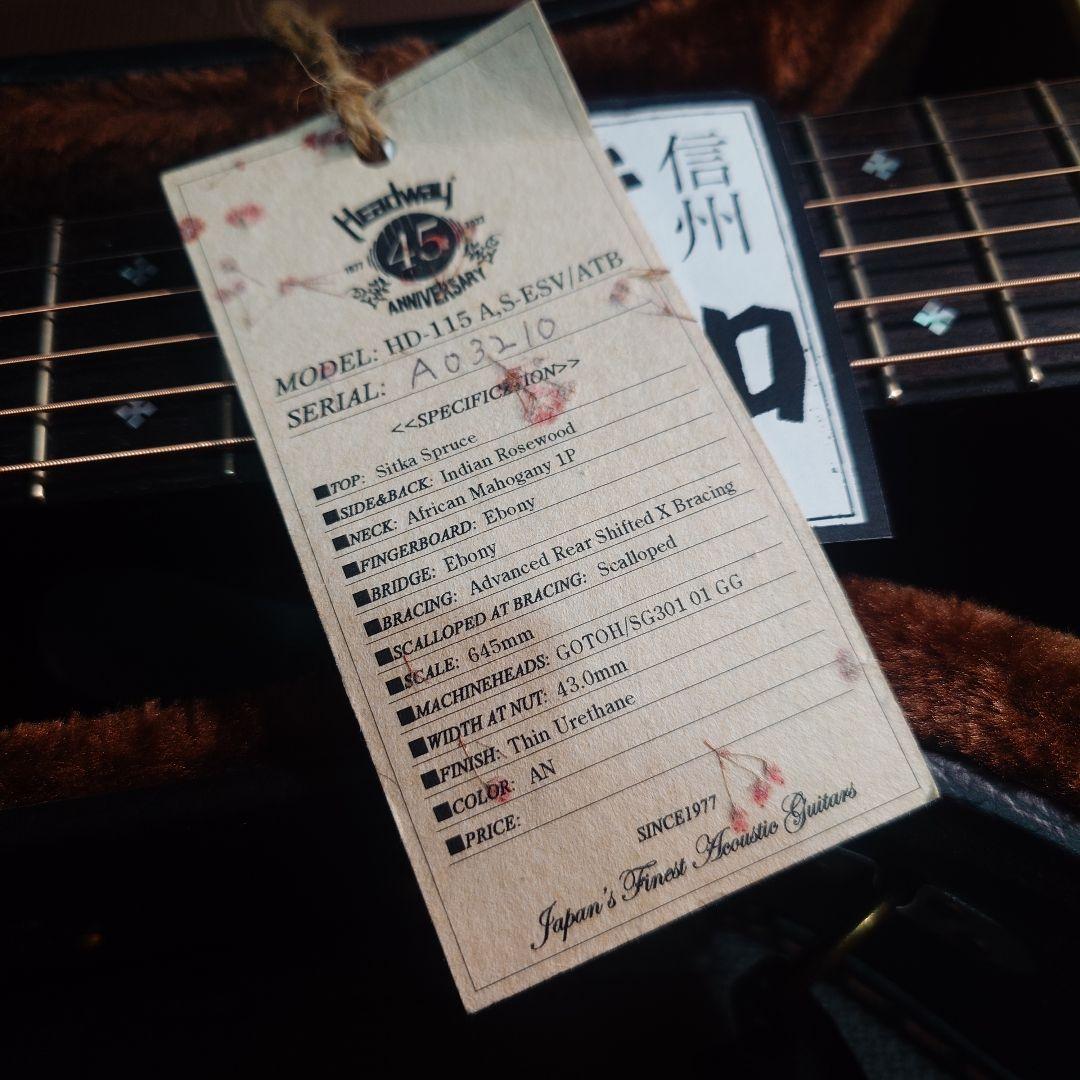 Headway
45
1977
ANNIVERSARY
MODEL: HD-115 A,S-ESV/ATB
SERIAL: A03210
<<SPECIFICATION>>
■TOP: Sitka Spruce
■SIDE&BACK: Indian Rosewood
■NECK: African Mahogany 1P
■FINGERBOARD: Ebony
■BRIDGE: Ebony
■BRACING: Advanced Rear Shifted X Bracing
■SCALLOPED AT BRACING: Scalloped
■SCALE: 645mm
■MACHINEHEADS: GOTOH/SG301 01 GG
■WIDTH AT NUT: 43.0mm
■FINISH: Thin Urethane
■COLOR: AN
■PRICE:
SINCE1977
Japan's Finest Acoustic Guitars
信州